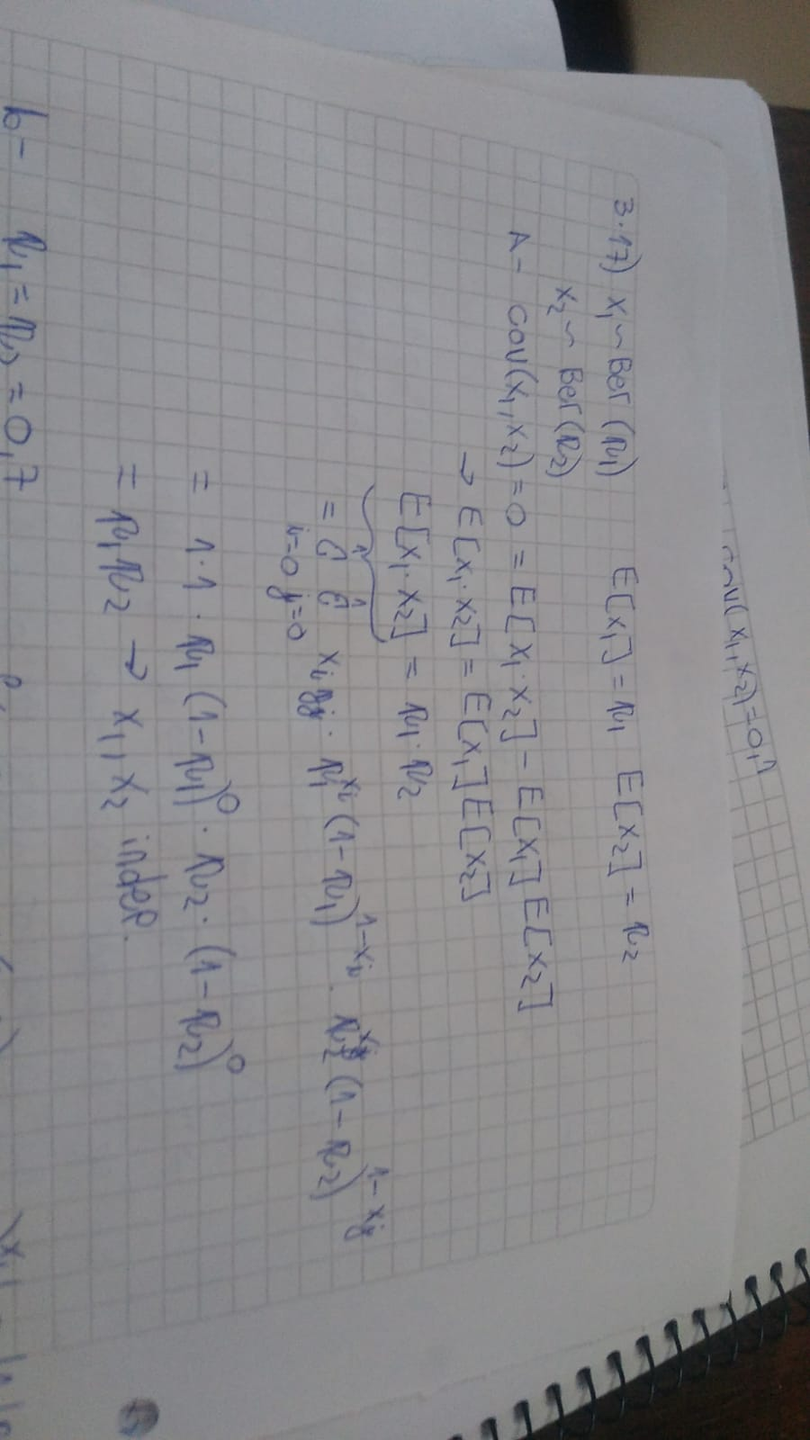 cov(x₁,x₂)=0,1
3.17) x₁ ~ Ber(p₁) E[x₁] = p₁ E[x₂] = p₂
x₂ ~ Ber(p₂)
A- cov(x₁,x₂) = 0 = E[x₁·x₂] - E[x₁]E[x₂]
→ E[x₁·x₂] = E[x₁]E[x₂]
E[x₁·x₂] = p₁·p₂
= Σ_{i=0}^{1} Σ_{j=0}^{1} xᵢyⱼ · p₁^{xᵢ} (1-p₁)^{1-xᵢ} · p₂^{xⱼ} (1-p₂)^{1-xⱼ}
= 1·1·p₁(1-p₁)⁰ · p₂·(1-p₂)⁰
= p₁p₂ → x₁,x₂ indep.
b- p₁ = p₂ = 0,7